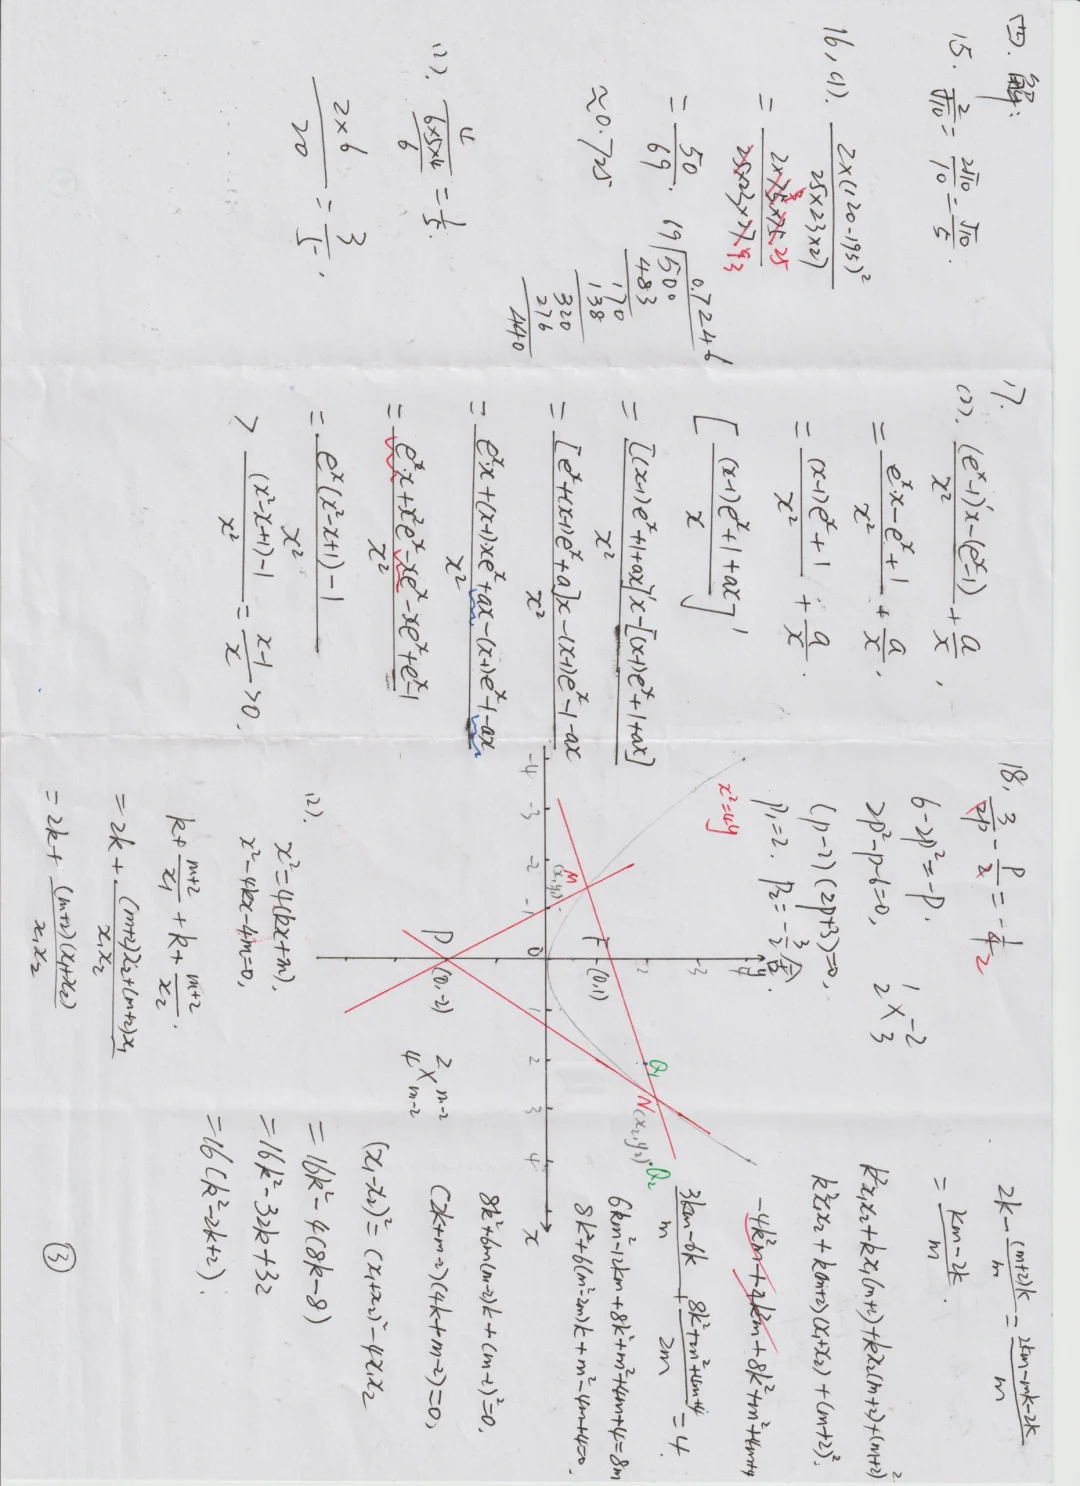 四. 解:
15. 2/√10 = 2√10/10 = √10/5.
16, (1). 2×(120-195)²/25×23×27
= 2×75×75 25/25×23×27 9 3
= 50/69.
≈0.725
69)500
0.7246
483
170
138
320
276
440
(2). 4/(6×5×4/6) = 1/5.
2×6/20 = 3/5,
17.
(2). (eˣ-1)'x-(eˣ-1)/x² + a/x,
= eˣx-eˣ+1/x² + a/x,
= (x-1)eˣ+1/x² + a/x.
[(x-1)eˣ+1+ax/x]'
= [(x-1)eˣ+1+ax]'x-[(x-1)eˣ+1+ax]/x²
= [eˣ+(x-1)eˣ+a]x-(x-1)eˣ-1-ax/x²
= eˣx+(x-1)xeˣ+ax-(x-1)eˣ-1-ax/x²
= eˣx+x²eˣ-xeˣ-xeˣ+eˣ-1/x²
= eˣ(x²-x+1)-1/x²
> (x²-x+1)-1/x² = x-1/x >0.
18, 3/2p - p/2 = -1/2
6-2p²=-p.
2p²-p-6=0,
1 -2
2 3
(p-2)(2p+3)=0,
p₁=2. p₂=-3/2 舍.
x²=4y
-4 -3 -2 -1 0 1 2 3 4 x
2 3 4 y
M (x₁,y₁)
F (0,1)
Q₁
N(x₂,y₂)
Q₂
P (0,-2)
(2).
x²=4(kx+m).
x²-4kx-4m=0,
k+ m+2/x₁ + k+ m+2/x₂.
=2k+ (m+2)x₂+(m+2)x₁/x₁x₂
=2k+ (m+2)(x₁+x₂)/x₁x₂
2 m-2
4 m-2
2k- (m+2)k/m = 2km-mk-2k/m
= km-2k/m.
k²x₁x₂+kx₁(m+2)+kx₂(m+2)+(m+2)²
k²x₁x₂+k(m+2)(x₁+x₂)+(m+2)².
-4k²m+4k²m+8k²+m²+4m+4
3km-6k/m + 8k²+m²+4m+4/2m = 4.
6km²-12km+8k²+m²+4m+4=8m
8k²+6(m²-2m)k+m²-4m+4=0,
8k²+6m(m-2)k+(m-2)²=0.
(2k+m-2)(4k+m-2)=0,
(x₁-x₂)²=(x₁+x₂)²-4x₁x₂
=16k²-4(8k-8)
=16k²-32k+32
=16(k²-2k+2).
③